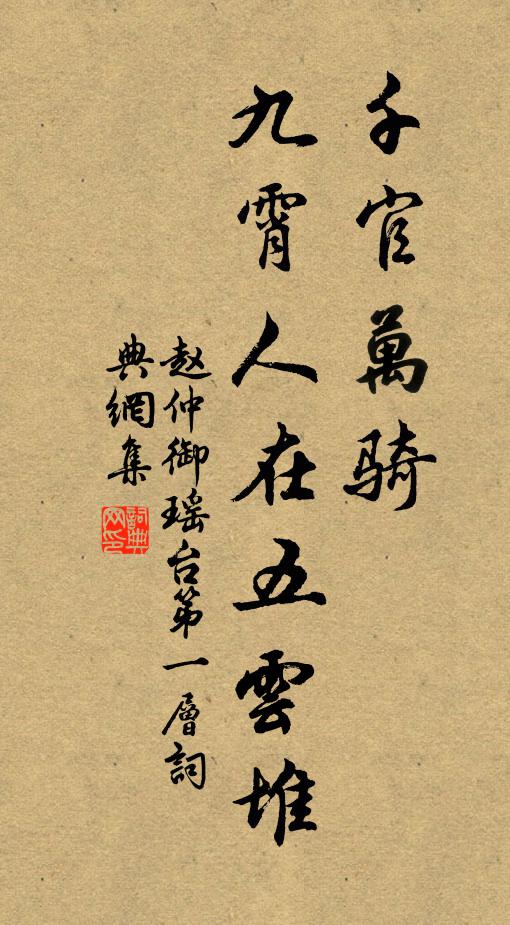 千官萬騎
九霄人在五雲堆
赵仲御瑶台第一層詞
典網集
詞典
网印